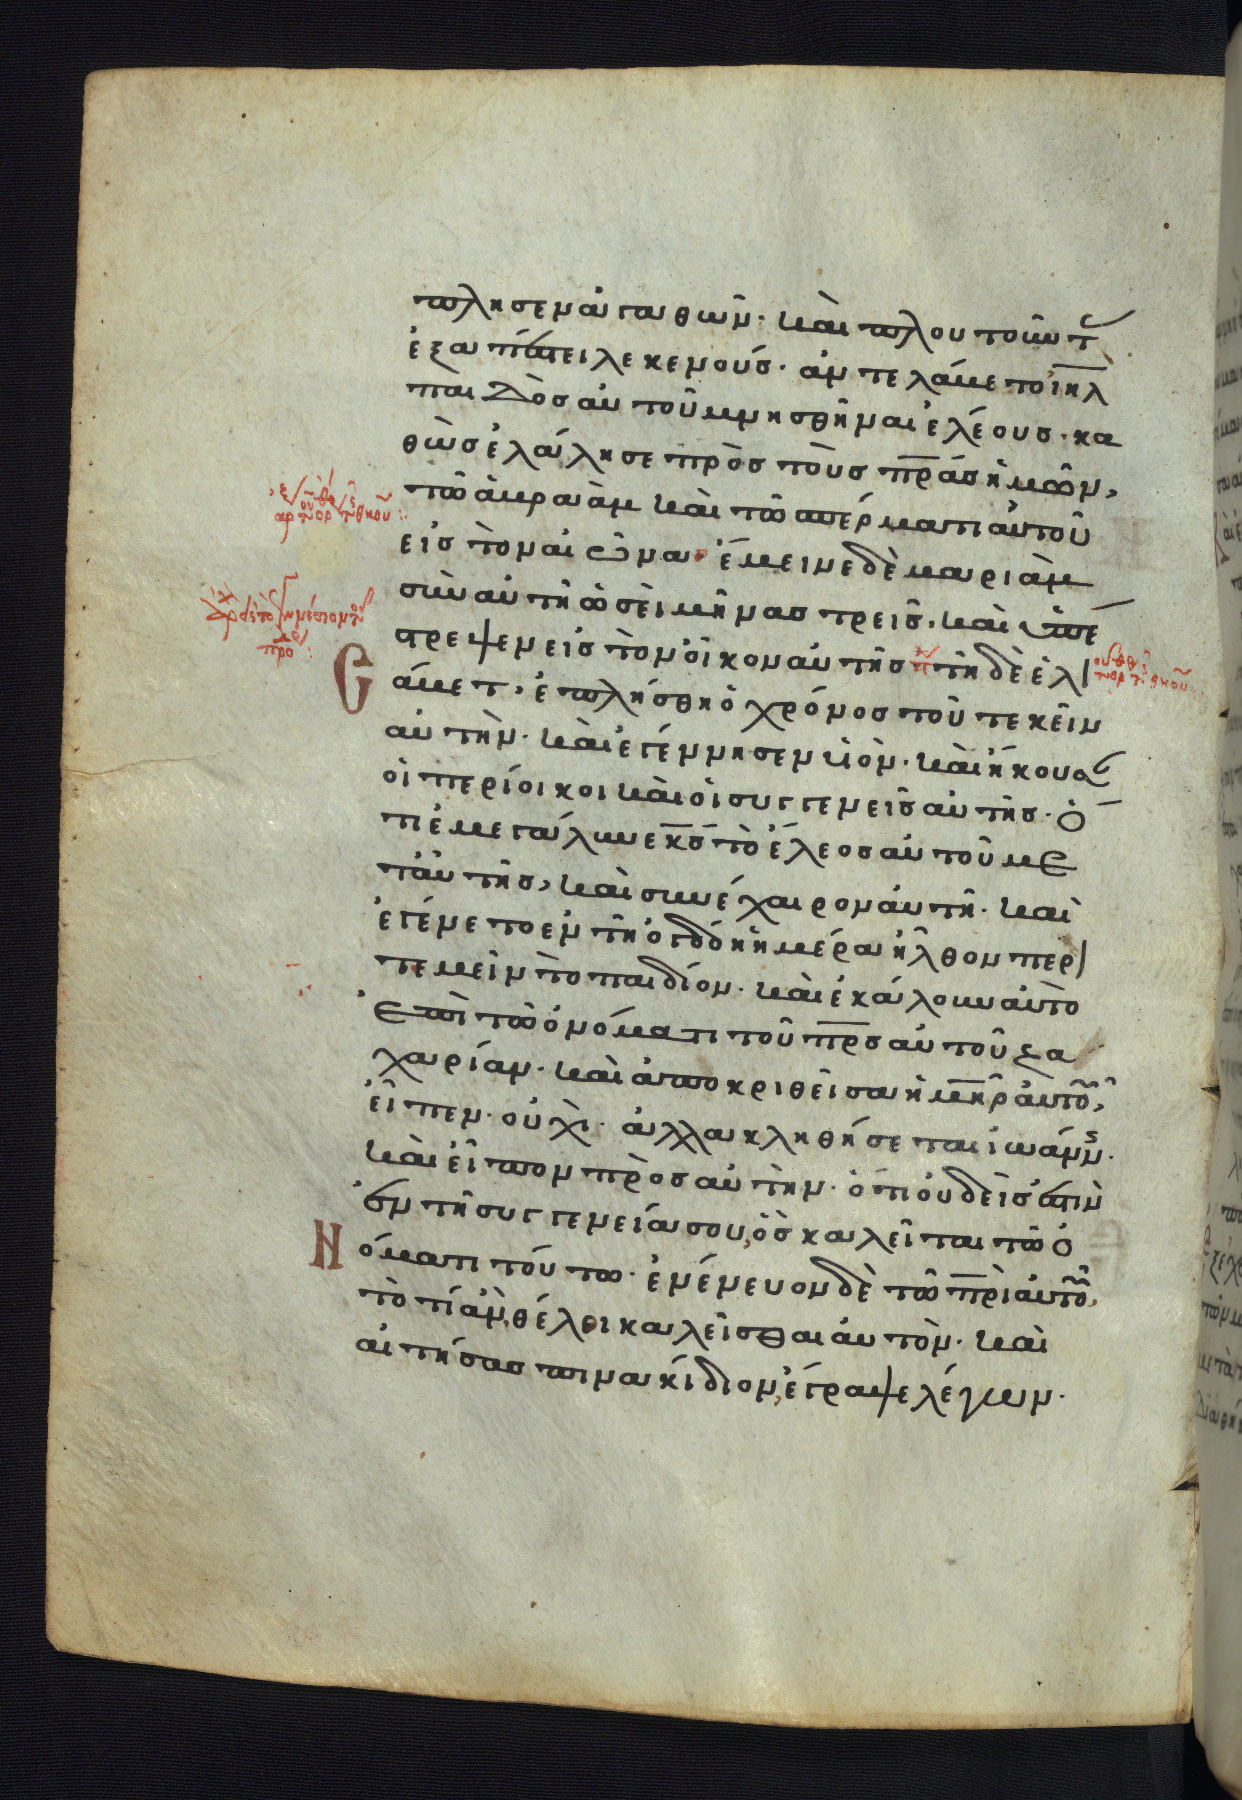 πλησεν ἀγαθῶν· καὶ πλουτοῦντ(ας)
ἐξαπέστειλε κενούς· ἀντελάβετο ἰηλ
παιδὸς αὐτοῦ μνησθῆναι ἐλέους· κα
θὼς ἐλάλησε πρὸς τοὺς πρας ἡμῶν,
τῶ ἀβραὰμ καὶ τῶ σπέρματι αὐτοῦ
εἰς τὸν αἰῶνα· ἔμεινε δὲ μαριὰμ
σὺν αὐτῆ ὡσεὶ μῆνας τρεῖς· καὶ ὑπέ
στρεψεν εἰς τὸν οἶκον αὐτῆς τῆ δὲ ἐλι
σάβετ, ἐπλήσθη ὁ χρόνος τοῦ τεκεῖν
αὐτὴν· καὶ ἐγέννησεν υἱόν· καὶ ἤκουσ(αν)
οἱ περίοικοι καὶ οἱ συγγενεῖς αὐτῆς· ὅ
τι ἐμεγάλυνε κς τὸ ἔλεος αὐτοῦ με
τ' αὐτῆς, καὶ συνέχαιρον αὐτῆ· καὶ
ἐγένετο ἐν τῆ ὀγδόη ἡμέρα ἦλθον περι
τεμεῖν τὸ παιδίον· καὶ ἐκάλουν αὐτὸ
ἐπὶ τῶ ὀνόματι τοῦ πρς αὐτοῦ ζα
χαρίαν· καὶ ἀποκριθεῖσα ἡ μηρ αὐτοῦ,
εἶπεν· οὐχὶ· ἀλλα κληθήσεται ἰωάνν(ης)·
καὶ εἶπον πρὸς αὐτὴν· ὅτι οὐδεὶς ἐστὶν
ἐν τῆ συγγενεία σου, ὃς καλεῖται τῶ ὀ
νόματι τούτω· ἐνένευον δὲ τῶ πρὶ αὐτοῦ,
τὸ τί ἂν θέλοι καλεῖσθαι αὐτὸν· καὶ
αἰτήσας πινακίδιον, ἔγραψε λέγων·